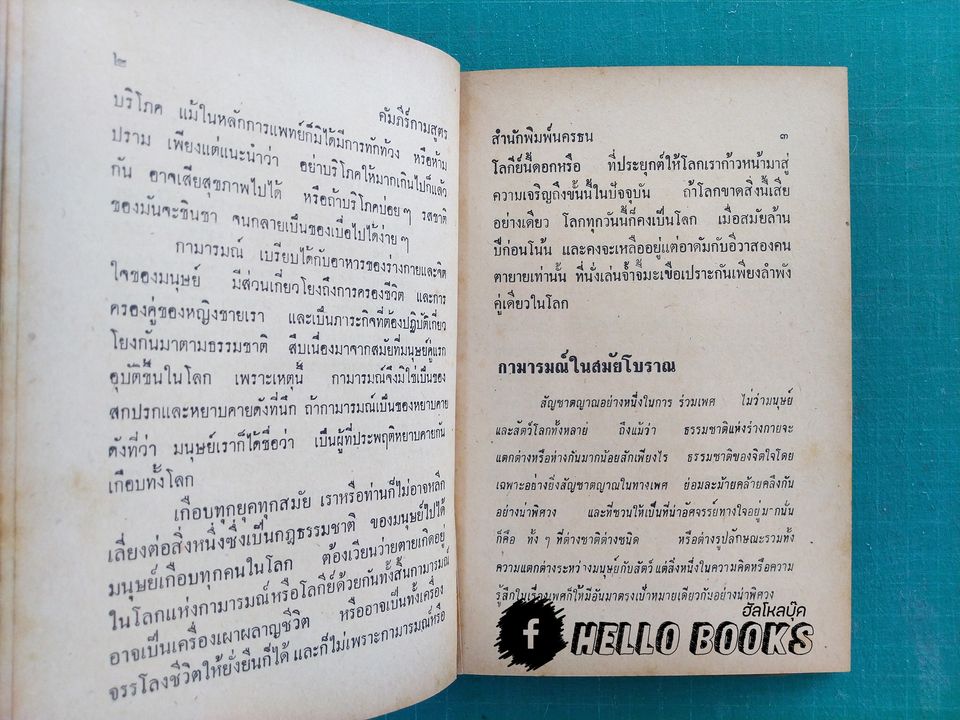 ๒
คัมภีร์กามสูตร
บริโภค แม้ในหลักการแพทย์ก็มิได้มีการทักท้วง หรือห้าม
ปราม เพียงแต่แนะนำว่า อย่าบริโภคให้มากเกินไปก็แล้ว
กัน อาจเสียสุขภาพไปได้ หรือถ้าบริโภคบ่อยๆ รสชาติ
ของมันจะชินชา จนกลายเป็นของเบื่อไปได้ง่ายๆ
กามารมณ์ เปรียบได้กับอาหารของร่างกายและจิต
ใจของมนุษย์ มีส่วนเกี่ยวโยงถึงการครองชีวิต และการ
ครองคู่ของหญิงชายเรา และเป็นภาระกิจที่ต้องปฏิบัติเกี่ยว
โยงกันมาตามธรรมชาติ สืบเนื่องมาจากสมัยที่มนุษย์คู่แรก
อุบัติขึ้นในโลก เพราะเหตุนี้ กามารมณ์จึงมิใช่เป็นของ
สกปรกและหยาบคายดังที่นึก ถ้ากามารมณ์เป็นของหยาบคาย
ดังที่ว่า มนุษย์เราก็ได้ชื่อว่า เป็นผู้ที่ประพฤติหยาบคายกัน
เกือบทั้งโลก
เกือบทุกยุคทุกสมัย เราหรือท่านก็ไม่อาจหลีก
เลี่ยงต่อสิ่งหนึ่งซึ่งเป็นกฎธรรมชาติ ของมนุษย์ไปได้
มนุษย์เกือบทุกคนในโลก ต้องเวียนว่ายตายเกิดอยู่
ในโลกแห่งกามารมณ์หรือโลกีย์ด้วยกันทั้งสิ้นกามารมณ์
อาจเป็นเครื่องเผาผลาญชีวิต หรืออาจเป็นทั้งเครื่อง
จรรโลงชีวิตให้ยั่งยืนก็ได้ และก็ไม่เพราะกามารมณ์หรือ
สำนักพิมพ์นครธน ๓
โลกีย์นี้ดอกหรือ ที่ประยุกต์ให้โลกเราก้าวหน้ามาสู่
ความเจริญถึงขั้นนี้ในปัจจุบัน ถ้าโลกขาดสิ่งนี้เสีย
อย่างเดียว โลกทุกวันนี้ก็คงเป็นโลก เมื่อสมัยล้าน
ปีก่อนโน้น และคงจะเหลืออยู่แต่อาดัมกับอีวาสองคน
ตายายเท่านั้น ที่นั่งเล่นจ้ำจี้มะเขือเปราะกันเพียงลำพัง
คู่เดียวในโลก
กามารมณ์ในสมัยโบราณ
สัญชาตญาณอย่างหนึ่งในการ ร่วมเพศ ไม่ว่ามนุษย์
และสัตว์โลกทั้งหลาย ถึงแม้ว่า ธรรมชาติแห่งร่างกายจะ
แตกต่างหรือห่างกันมากน้อยสักเพียงไร ธรรมชาติของจิตใจโดย
เฉพาะอย่างยิ่งสัญชาตญาณในทางเพศ ย่อมละม้ายคล้ายคลึงกัน
อย่างน่าพิศวง และที่ชวนให้เป็นที่น่าอัศจรรย์ทางใจอยู่มากนั่น
ก็คือ ทั้ง ๆ ที่ต่างชาติต่างชนิด หรือต่างรูปลักษณะรวมทั้ง
ความแตกต่างระหว่างมนุษย์กับสัตว์ แต่สิ่งหนึ่งในความคิดหรือความ
รู้สึกในเรื่องเพศก็ให้มีอันมาตรงเป้าหมายเดียวกันอย่างน่าพิศวง
ฮัลโหลบุ๊ค
f HELLO BOOKS